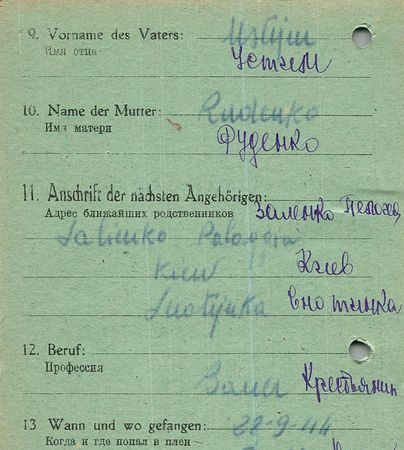 9. Vorname des Vaters: Ustym
Имя отца Устим
10. Name der Mutter: Rudenko
Имя матери Руденко
11. Anschrift der nächsten Angehörigen:
Адрес ближайших родственников Заленко
Salienko Palaggia
Kiew Киев
12. Beruf:
Профессия Bauer Крестьянин
13 Wann und wo gefangen: 28-9-44
Когда и где попал в плен